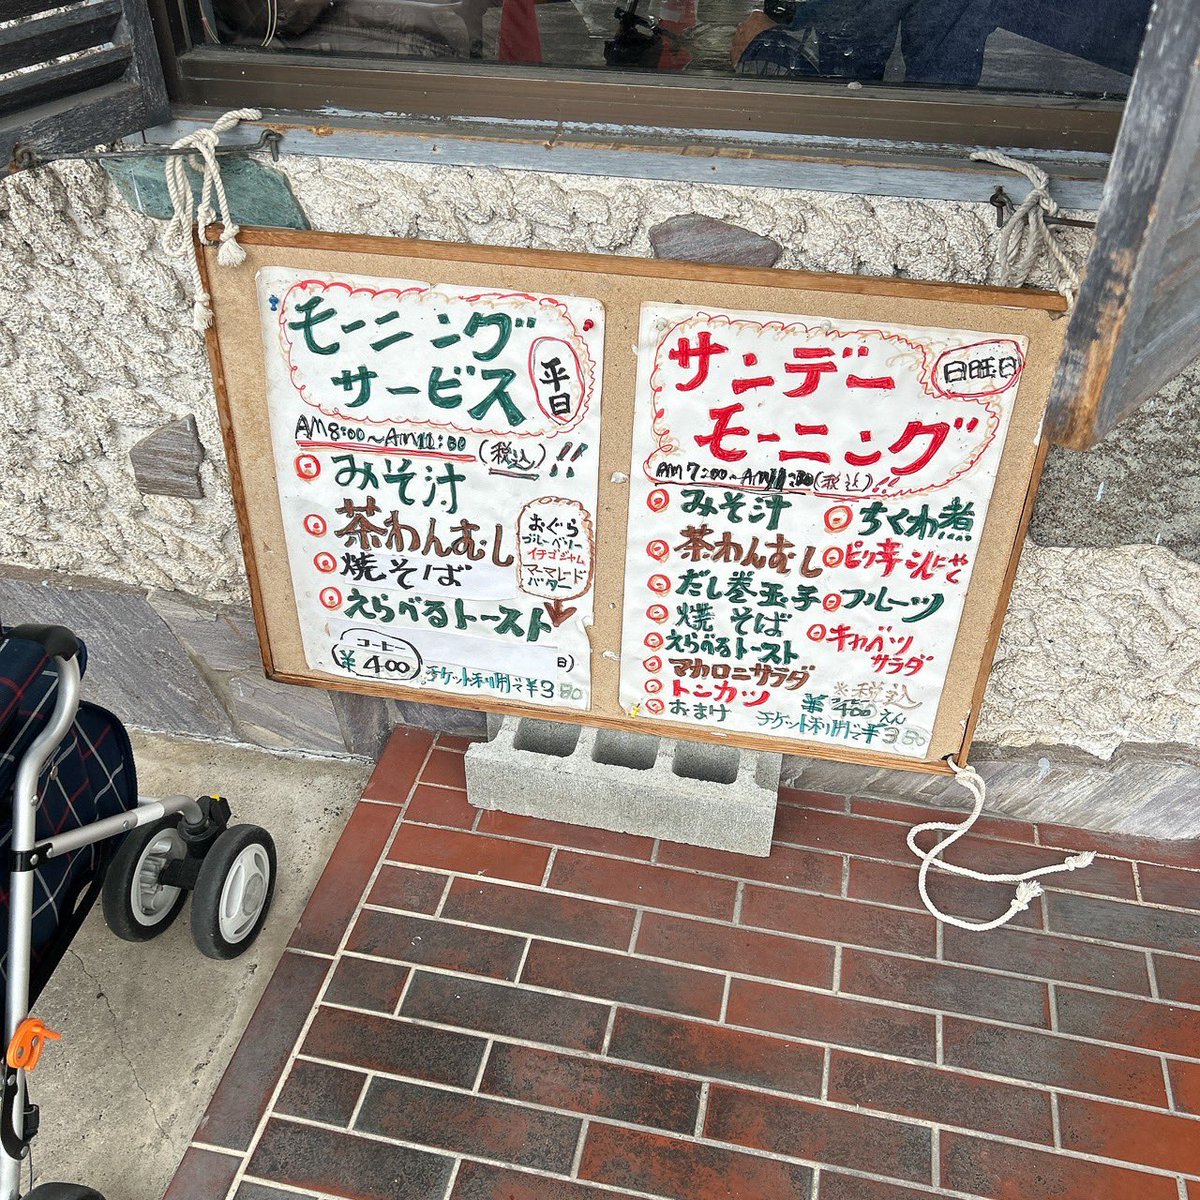 モーニング
サービス
平日
AM8:00～AM11:00(税込)!!
◎みそ汁
◎茶わんむし
◎焼そば
◎えらべるトースト
おぐら
ブルーベリー
イチゴジャム
マーマレード
バター
コーヒー
¥400
チケット利用で¥380
サンデー
モーニング
日曜日
AM7:00～AM11:30(税込)!!
◎みそ汁
◎茶わんむし
◎だし巻玉子
◎焼そば
◎えらべるトースト
◎マカロニサラダ
◎トンカツ
◎おまけ
◎ちくわ煮
◎ピリ辛こんにゃく
◎フルーツ
◎キャベツ
サラダ
※税込
¥400えん
チケット利用で¥380